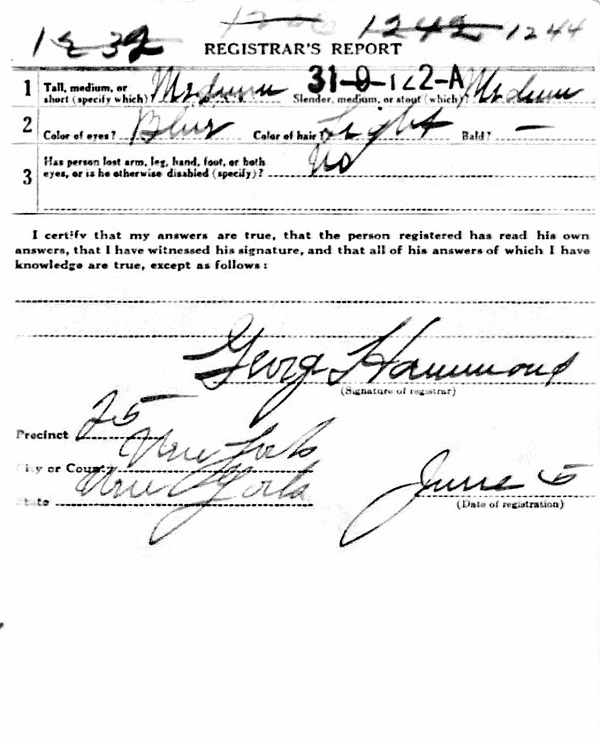 1232 1242 1244
REGISTRAR'S REPORT
31-9-122-A
1 Tall, medium, or short (specify which)? Medium Slender, medium, or stout (which)? Medium
2 Color of eyes? Blue Color of hair Light Bald? —
3 Has person lost arm, leg, hand, foot, or both
eyes, or is he otherwise disabled (specify)? No
I certify that my answers are true, that the person registered has read his own
answers, that I have witnessed his signature, and that all of his answers of which I have
knowledge are true, except as follows:
George Hammond
(Signature of registrar)
Precinct 25
City or County New York
State New York June 5
(Date of registration)